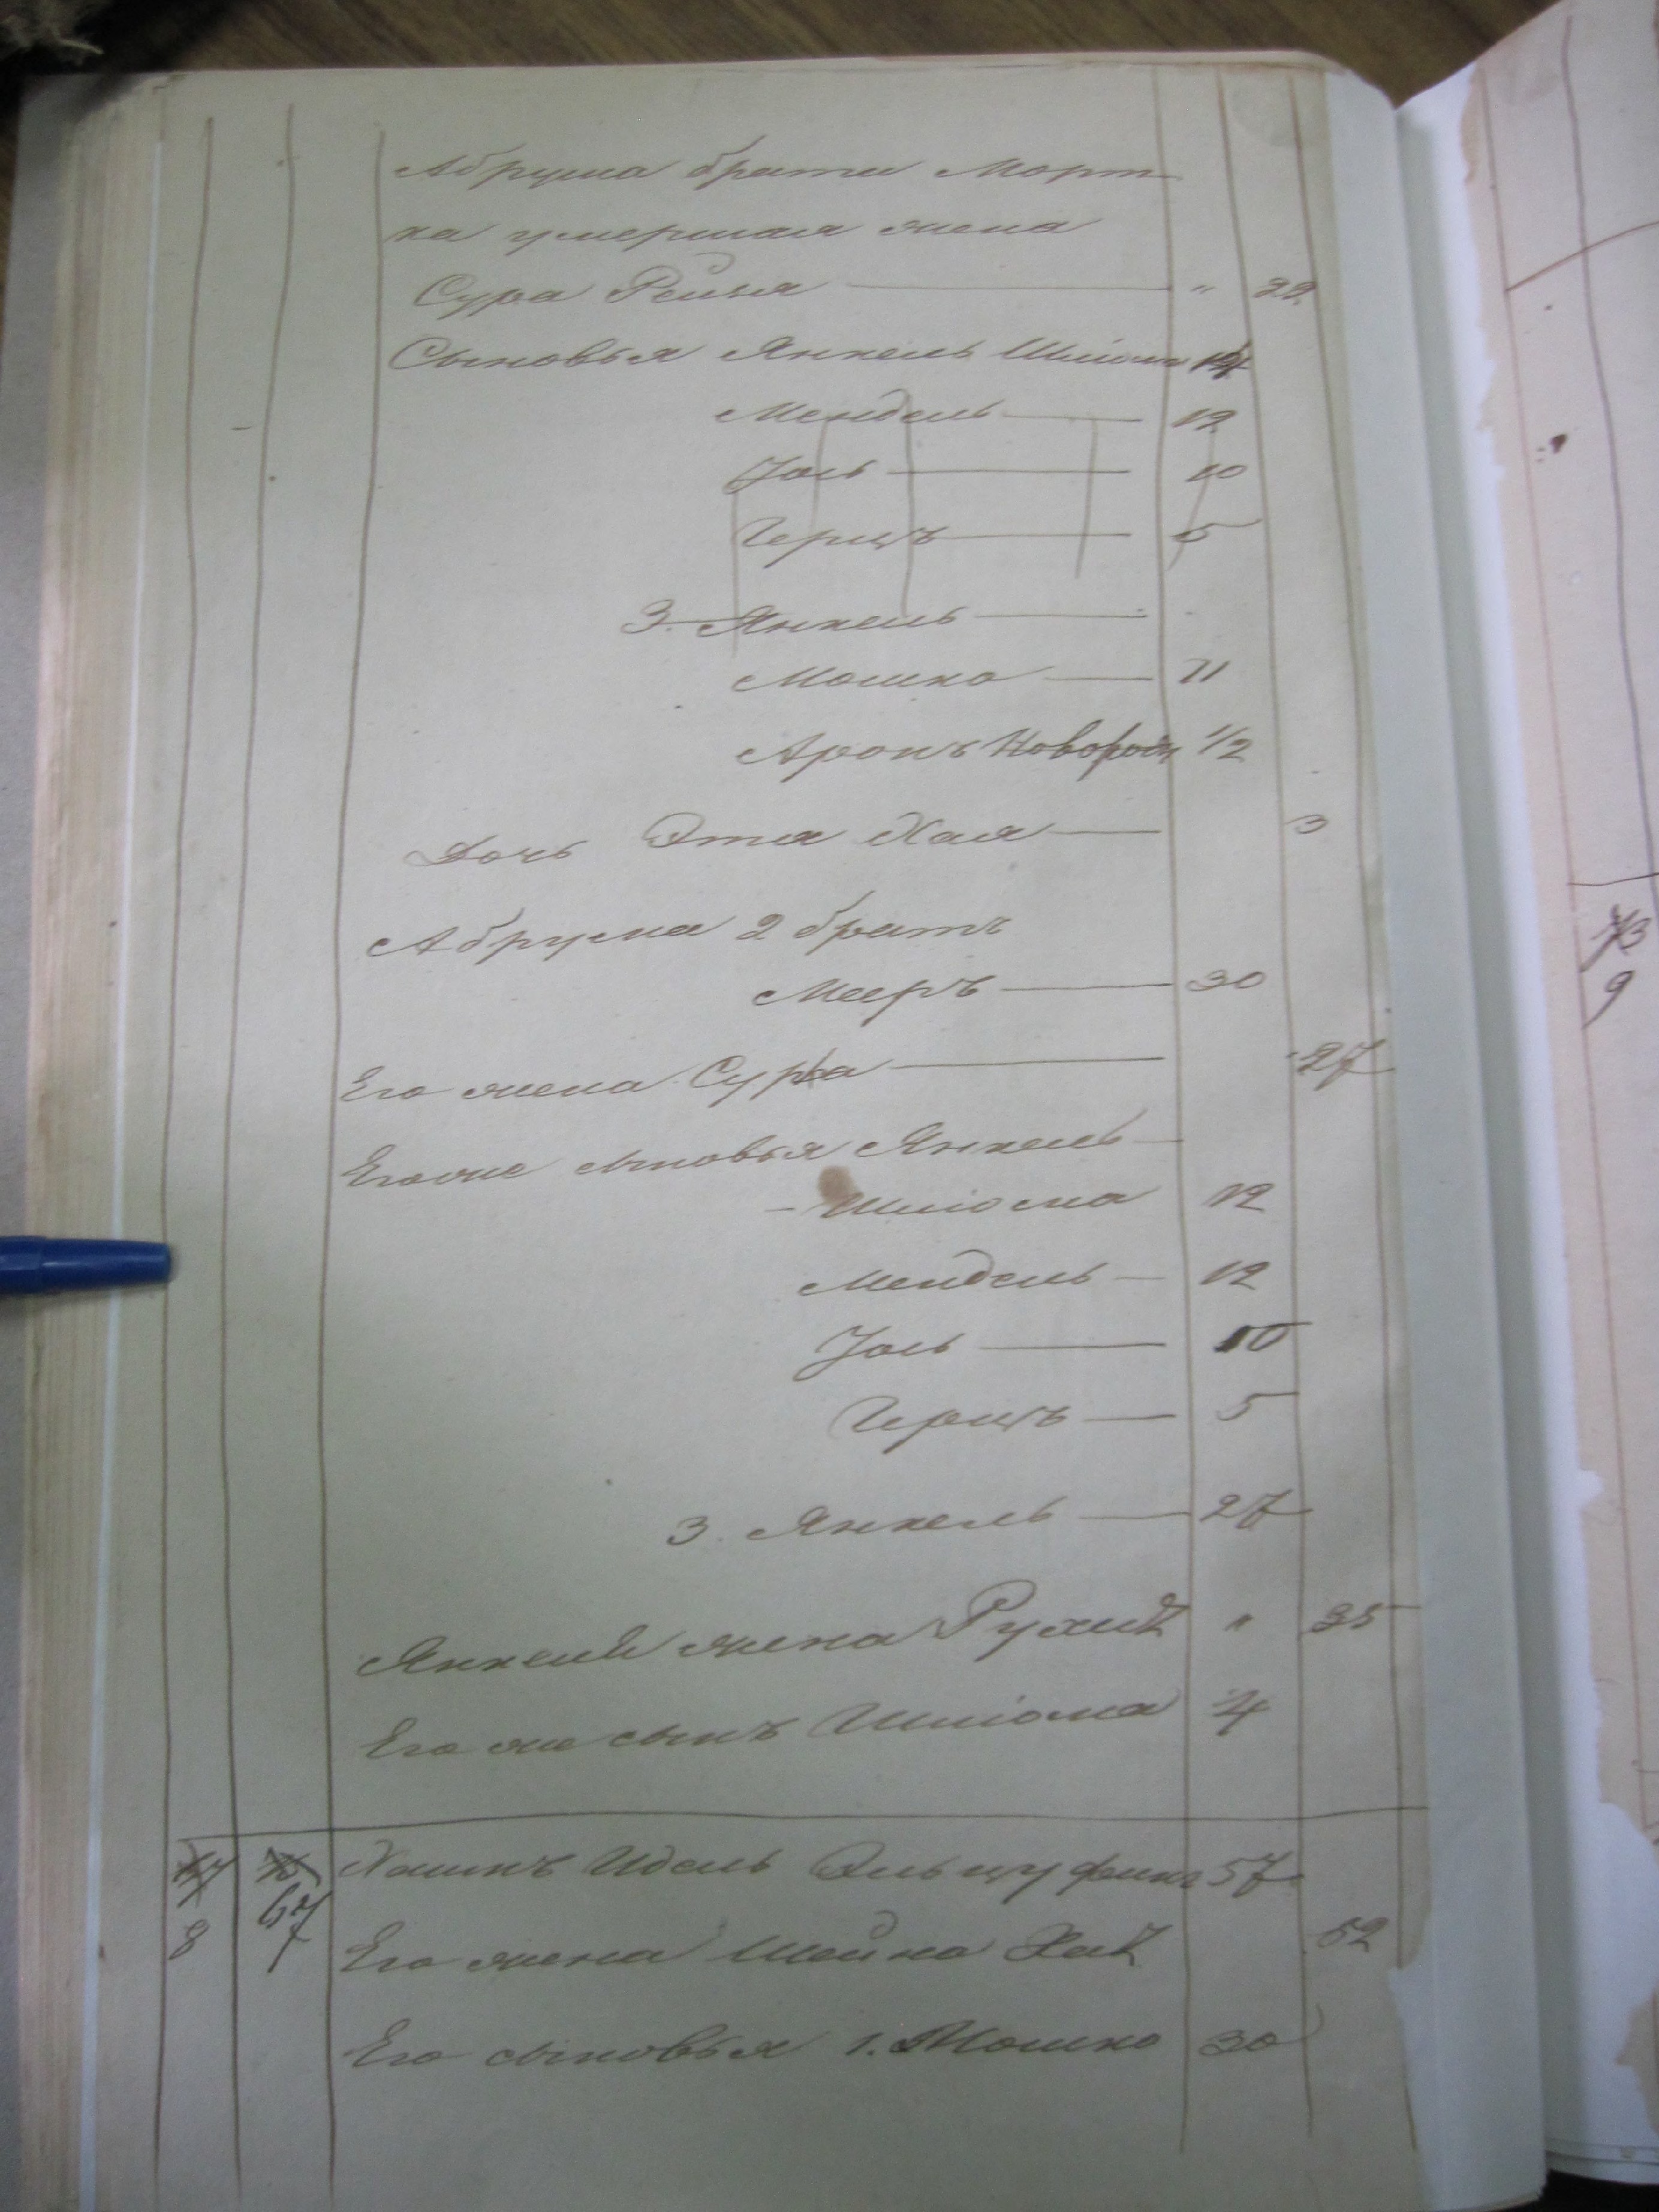 Абрума брата Морт
ка умершая жена
Сура Рейзя " 22
Сыновья Янкель Шліома
Мендель 12
Іоль 10
Герцъ 5
3. Янкель
Мошко 11
Аронъ Новорож 1/2
Дочь Эта Хая 3
Абрума 2 братъ
Мееръ 30
Его жена Сура 27
Его же сыновья Янкель
Шліома 12
Мендель 12
Іоль 10
Герцъ 5
3. Янкель 27
Янкеля жена Рухля " 25
Его же сынъ Шліома 4
8 67 Хаимъ Идель Эльцуфинъ 57
Его жена Шейна Хая 52
Его сыновья 1. Мошко 30
73
9